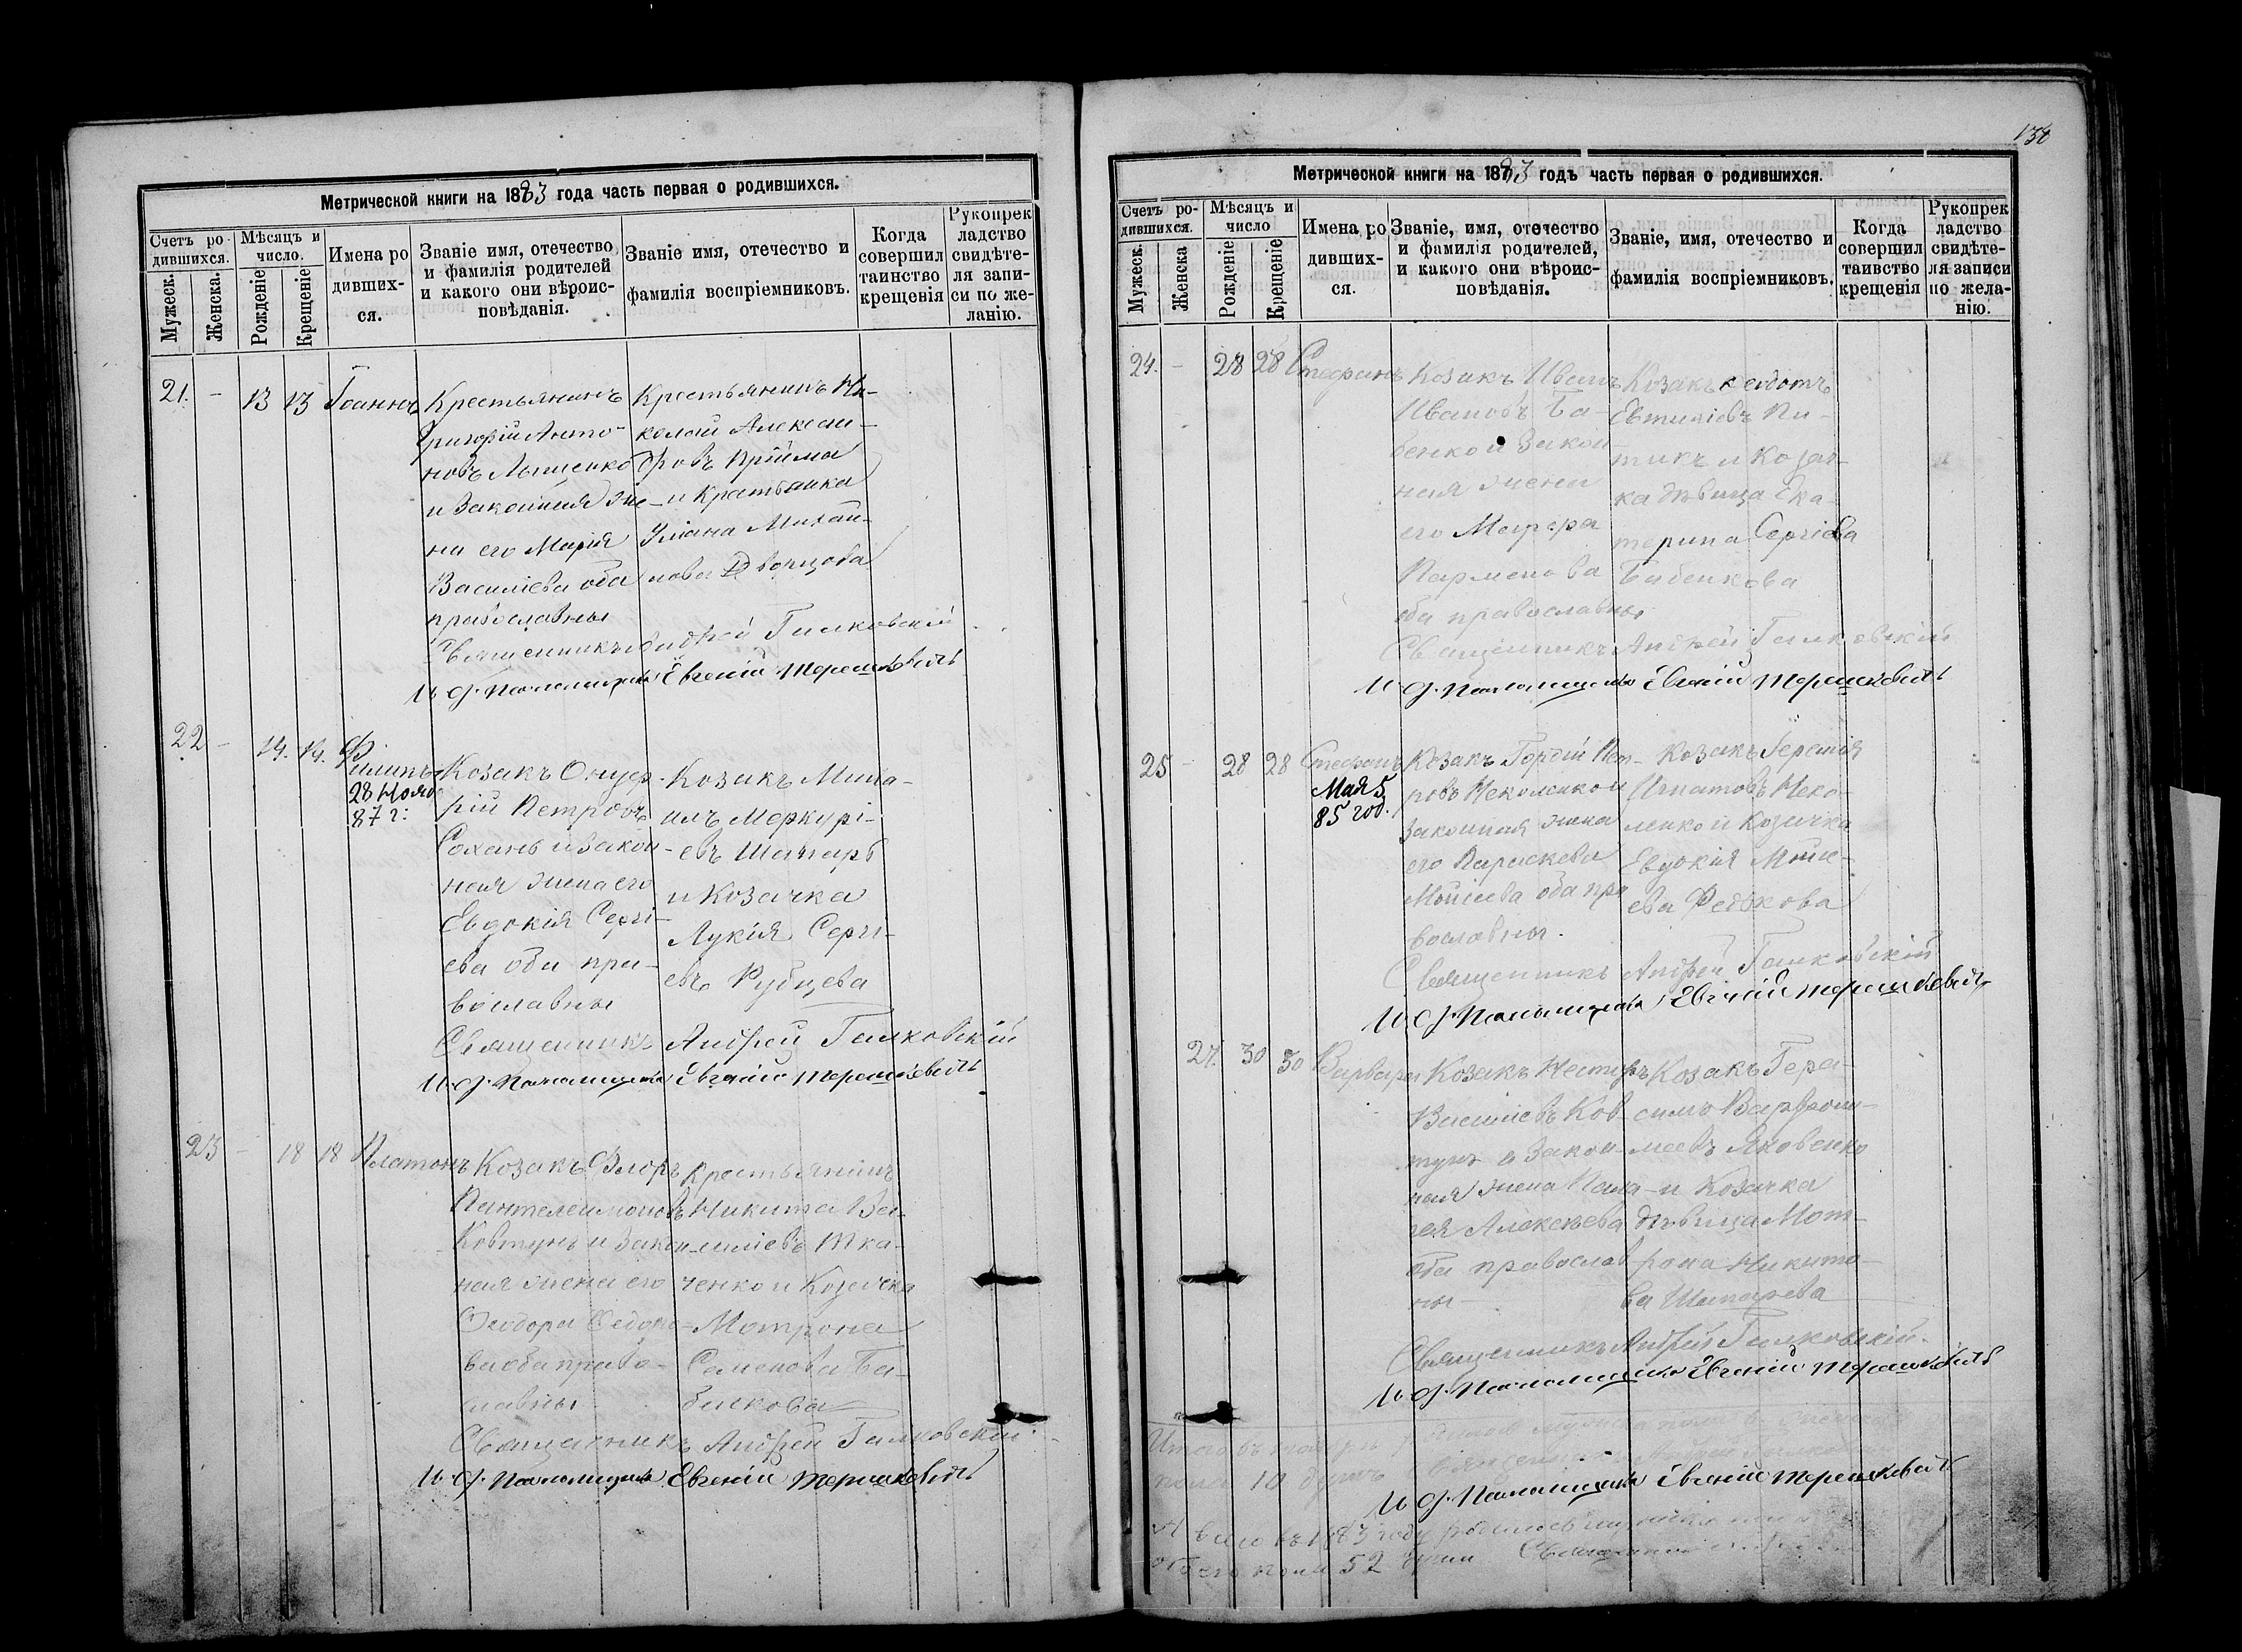 Метрической книги на 1883 года часть первая о родившихся.
Счетъ ро-
дившихся.
Мѣсяцъ и
число.
Имена ро
дивших-
ся.
Званіе имя, отечество
и фамилія родителей
и какого они вѣроис-
повѣданія.
Званіе имя, отечество и
фамилія воспріемниковъ.
Когда
совершил
таинство
крещенія
Рукопрек
ладство
свидѣте-
ля запи-
си по же-
ланію.
Мужеск.
Женска.
Рожденіе
Крещеніе
21. - 13 13 Іоаннъ
Крестьянинъ
Григорій Анто-
новъ Лыщенко
и Законная же-
на его Марія
Василіева оба
православны
Крестьянинъ Ни-
колай Алексан-
дровъ Прійма
и Крестьянка
Уліана Михай-
лова Дворцова
Священникъ Андрей Галковскій
И. д. Паламщика Евгеній Терешкевичъ
22 - 14. 14. Филипъ
28 Нояб
87 г:
Козакъ Онуф-
рій Петровъ
Сохань и закон-
ная жена его
Евдокія Сергі-
ева оба пра-
вославны
Козакъ Миха-
илъ Меркурі-
евъ Шапарь
и Козачка
Лукія Сергі-
евъ Рубцева
Священникъ Андрей Галковскій
И. д. Паламщика Евгеній Терешкевичъ
23 - 18 18 Платонъ
Козакъ Флоръ
Пантелеимоновъ
Ковтунъ и закон-
ная жена его
Феодора Федоро-
ва оба право-
славны
Крестьянинъ
Никита Ва-
силіевъ Тка-
ченко и Козачка
Мотрона
Семенова Ба-
бикова
Священникъ Андрей Галковскій
И. д. Паламщика Евгеній Терешкевичъ
130
Метрической книги на 1883 годъ часть первая о родившихся.
Счетъ ро-
дившихся.
Мѣсяцъ и
число
Имена ро
дивших-
ся.
Званіе, имя, отечество
и фамилія родителей,
и какого они вѣроис-
повѣданія.
Званіе, имя, отечество и
фамилія воспріемниковъ.
Когда
совершил
таивство
крещенія
Рукопрек
ладство
свидѣте-
ля записи
по жела-
нію.
Мужеск.
Женска
Рожденіе
Крещеніе
24. - 28 28 Стефанъ
Козакъ Иванъ
Ивановъ Ба-
бенко и Закон-
ная жена
его Марфа
Парменова
оба православны
Козакъ Федотъ
Евтихіевъ Пи-
тикъ и Козач-
ка дѣвица Ека-
терина Сергіева
Бабенкова
Священникъ Андрей Галковскій
И. д. Паламщика Евгеній Терешкевичъ
25 - 28 28 Стефанъ
Мая 5
85 год.
Козакъ Гордій Пет-
ровъ Неколенко и
законная жена
его Параскева
Мойсеева оба пра
вославны.
Козакъ Герасій
Игнатовъ Неко-
ленко и Козачка
Евдокія Мойсе-
ева Редькова
Священникъ Андрей Галковскій
И. д. Паламщика Евгеній Терешкевичъ
27. 30 30 Варвара
Козакъ Несторъ
Василіевъ Ков-
тунъ и Закон-
ная жена Пала-
гея Алексѣева
оба православ
ны
Козакъ Гера-
симъ Варфоло-
меевъ Яковенко
и Козачка
дѣвица Мот-
рона Никито-
ва Шапарева
Священникъ Андрей Галковскій.
И. д. Паламщика Евгеній Терешкевичъ
пола 10 душъ
И. д. Паламщика Евгеній Терешкевичъ
въ 1883 году родилось
пола 52 души